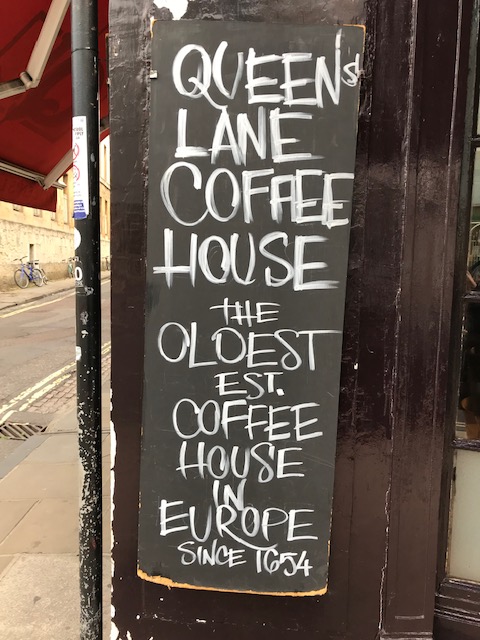 QUEEN's
LANE
COFFEE
HOUSE
THE
OLDEST
EST.
COFFEE
HOUSE
IN
EUROPE
SINCE 1654